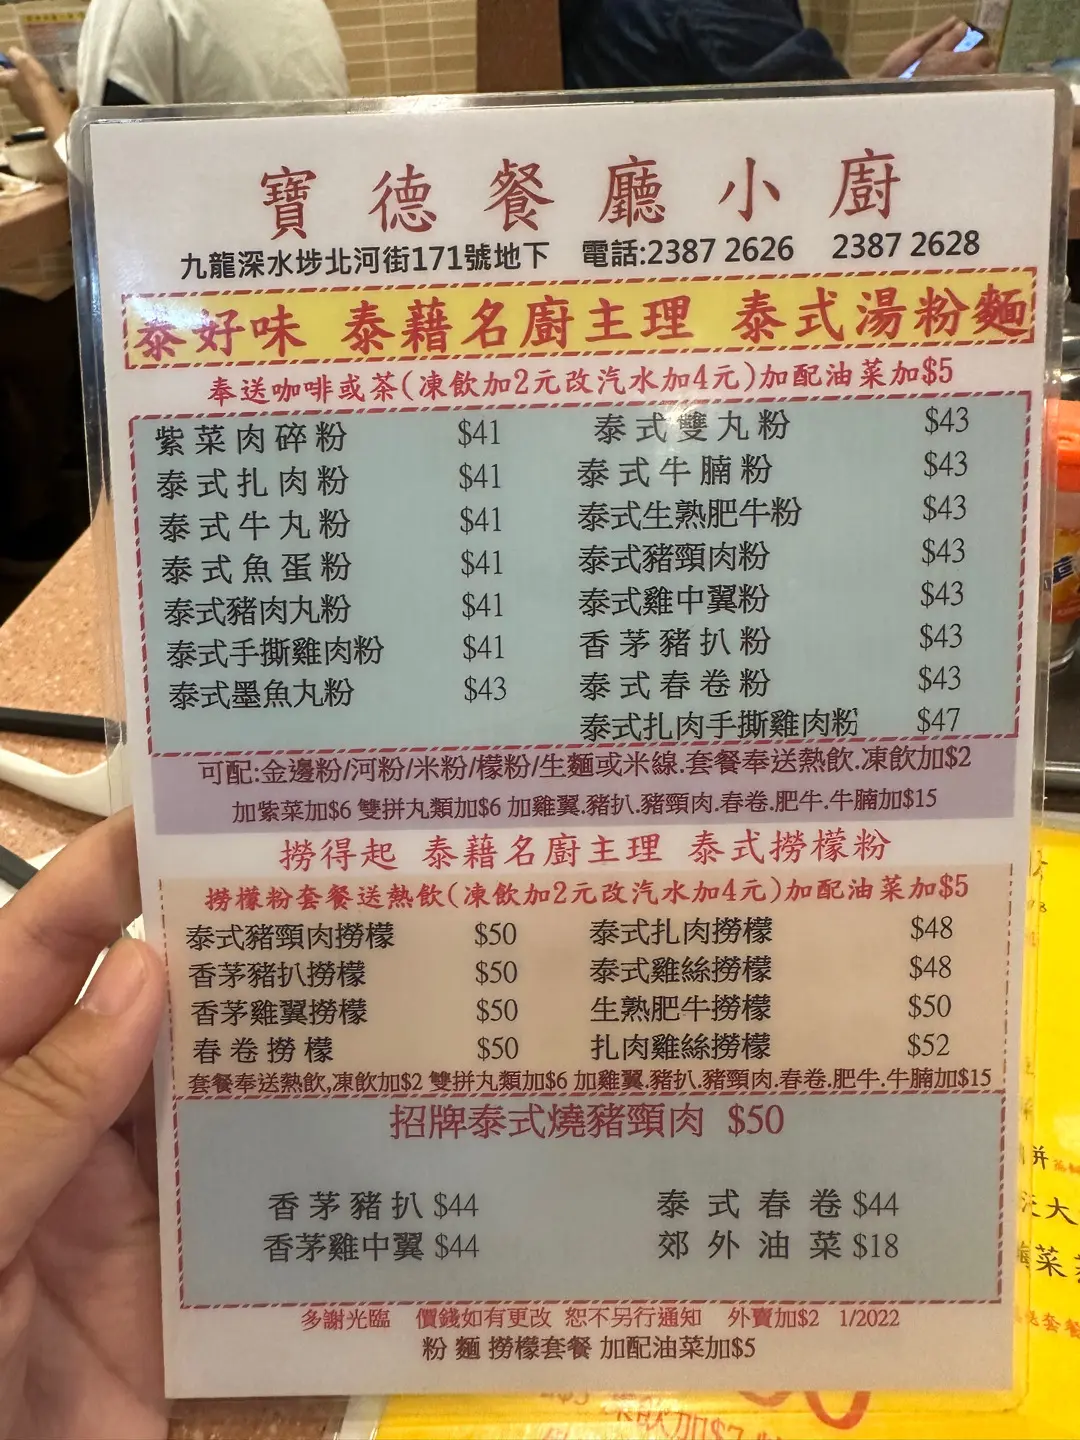 寶德餐廳小廚
九龍深水埗北河街171號地下 電話:2387 2626 2387 2628
泰好味 泰藉名廚主理 泰式湯粉麵
奉送咖啡或茶(凍飲加2元改汽水加4元)加配油菜加$5
紫菜肉碎粉 $41
泰式扎肉粉 $41
泰式牛丸粉 $41
泰式魚蛋粉 $41
泰式豬肉丸粉 $41
泰式手撕雞肉粉 $41
泰式墨魚丸粉 $43
泰式雙丸粉 $43
泰式牛腩粉 $43
泰式生熟肥牛粉 $43
泰式豬頸肉粉 $43
泰式雞中翼粉 $43
香茅豬扒粉 $43
泰式春卷粉 $43
泰式扎肉手撕雞肉粉 $47
可配:金邊粉/河粉/米粉/檬粉/生麵或米線.套餐奉送熱飲.凍飲加$2
加紫菜加$6 雙拼丸類加$6 加雞翼.豬扒.豬頸肉.春卷.肥牛.牛腩加$15
撈得起 泰藉名廚主理 泰式撈檬粉
撈檬粉套餐送熱飲(凍飲加2元改汽水加4元)加配油菜加$5
泰式豬頸肉撈檬 $50
香茅豬扒撈檬 $50
香茅雞翼撈檬 $50
春卷撈檬 $50
泰式扎肉撈檬 $48
泰式雞絲撈檬 $48
生熟肥牛撈檬 $50
扎肉雞絲撈檬 $52
套餐奉送熱飲,凍飲加$2 雙拼丸類加$6 加雞翼.豬扒.豬頸肉.春卷.肥牛.牛腩加$15
招牌泰式燒豬頸肉 $50
香茅豬扒 $44
香茅雞中翼 $44
泰式春卷 $44
郊外油菜 $18
多謝光臨 價錢如有更改 恕不另行通知 外賣加$2 1/2022
粉麵撈檬套餐 加配油菜加$5